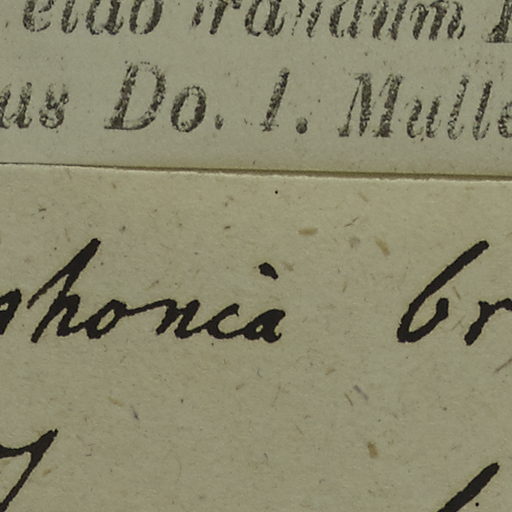 elabo randum
us Do. I. Mulle
phonia br